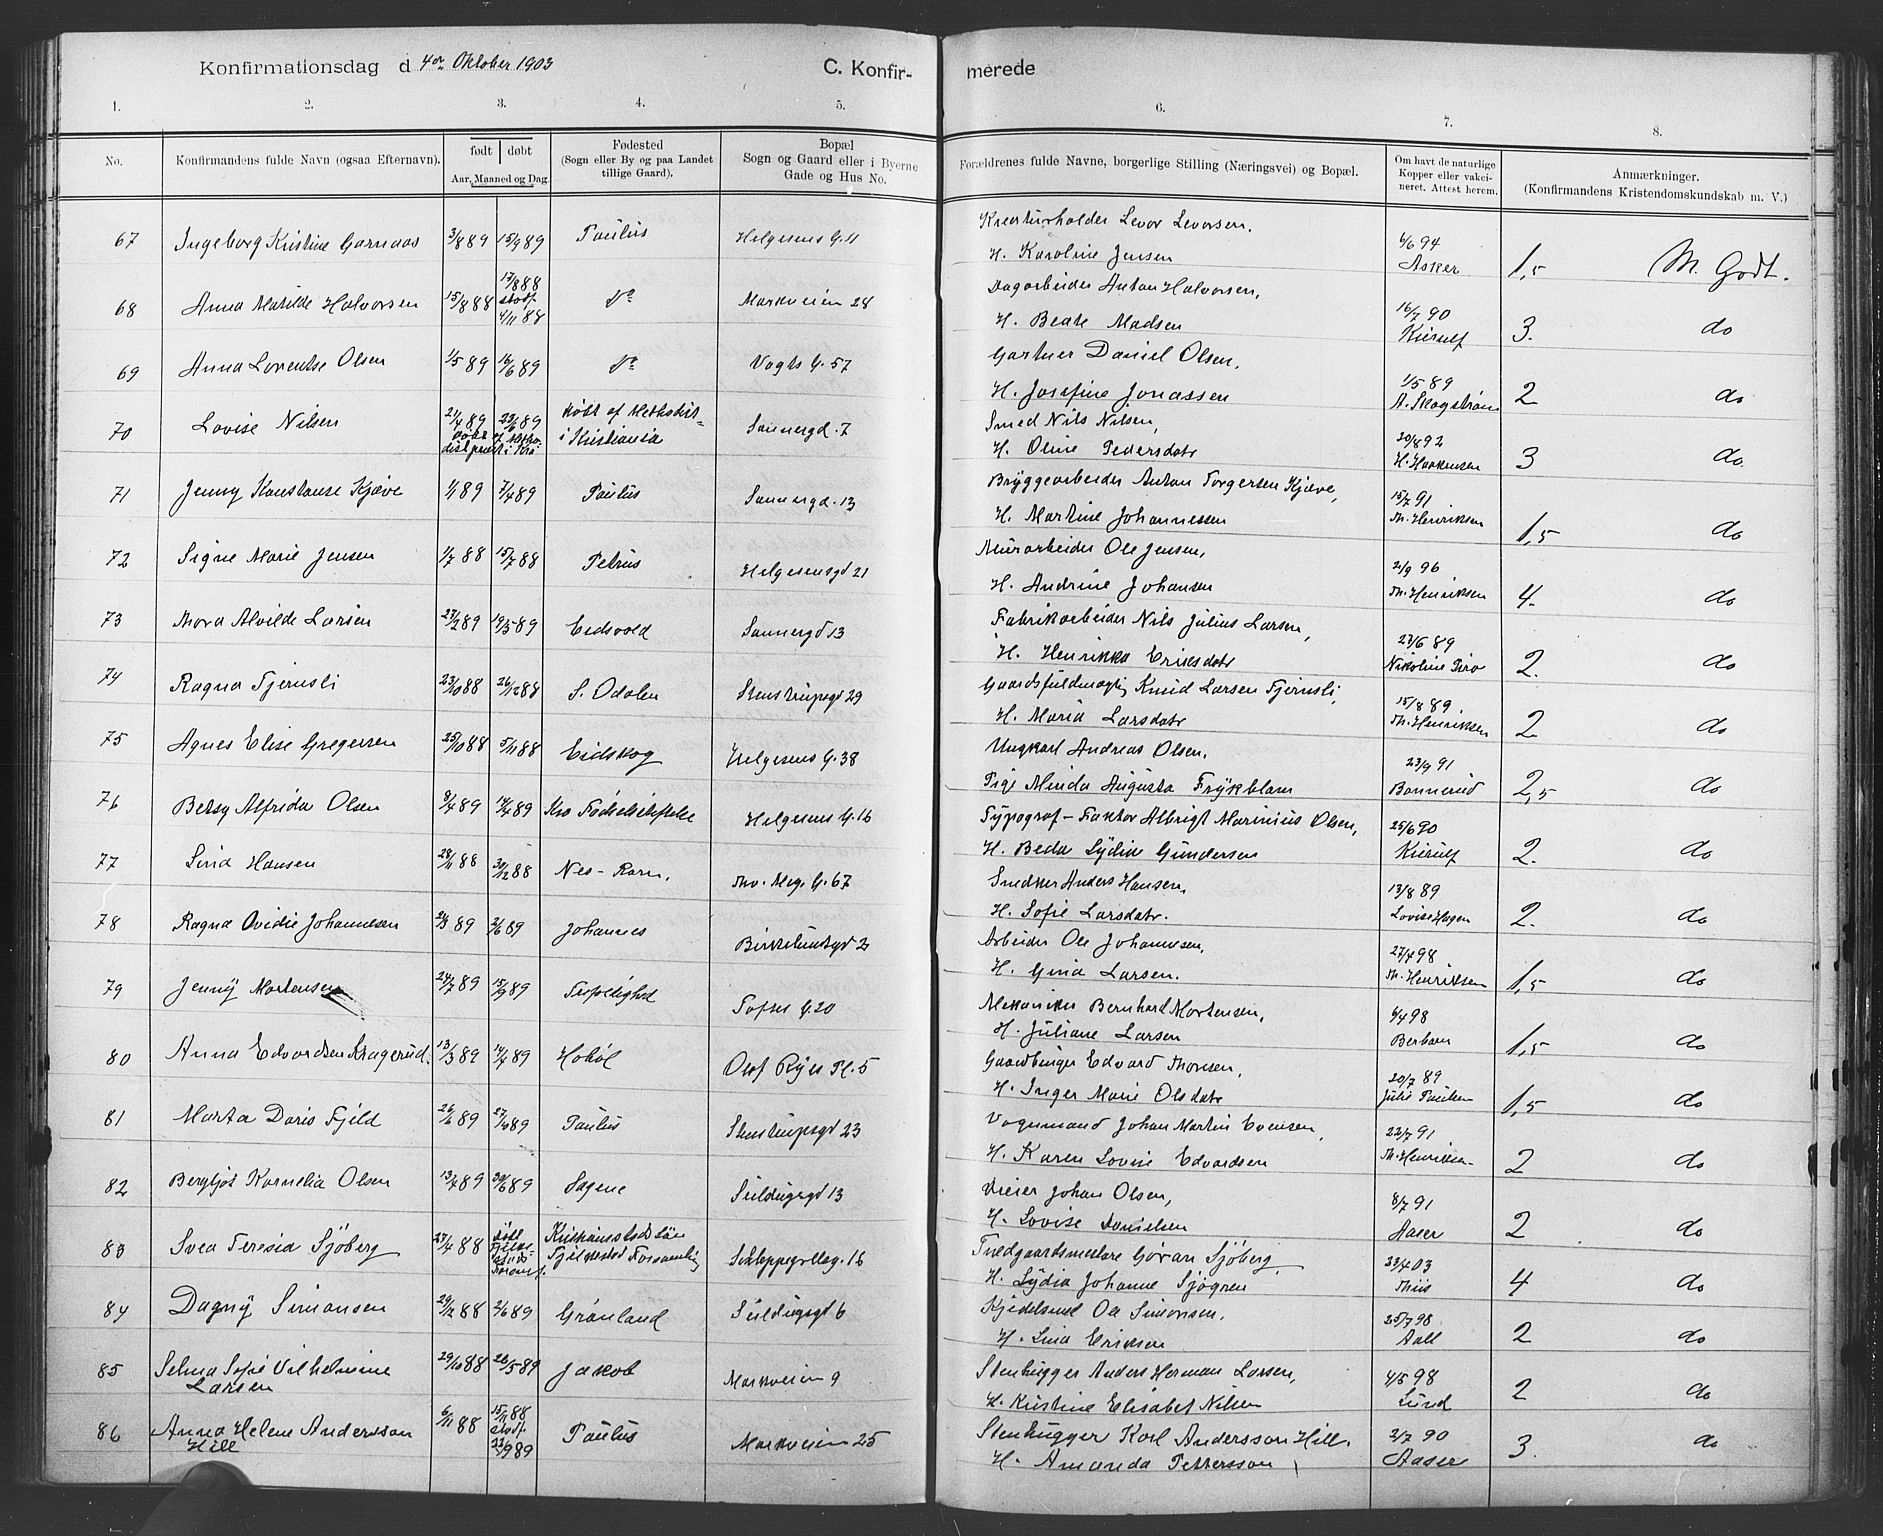 Konfirmationsdag d 4de Oktober 1903
C. Konfir-
merede
1. 2. 3. 4. 5. 6. 7. 8.
No.
Konfirmandens fulde Navn (ogsaa Efternavn).
født døbt
Aar, Maaned og Dag.
Fødested
(Sogn eller By og paa Landet
tillige Gaard).
Bopæl
Sogn og Gaard eller i Byerne
Gade og Hus No.
Forældrenes fulde Navne, borgerlige Stilling (Næringsvei) og Bopæl.
Om havt de naturlige
Kopper eller vakci-
neret. Attest herom.
Anmærkninger.
(Konfirmandens Kristendomskundskab m. V.)
67 Ingeborg Kristine Garnaas 3/8 89 15/9 89 Paulus Helgesens G. 11
Kreaturholder Levor Levorsen,
H. Karoline Jensen
6/6 94
Asker
1,5 M. Godt.
68 Anna Matilde Halvorsen 15/8 88 17/8 88
stadf.
4/11 88
do Markveien 28
Dagarbeider Anton Halvorsen,
H. Beate Madsen
16/7 90
Kierulf
3. do
69 Anna Lorentse Olsen 1/5 89 16/6 89 do Vogts G. 57
Gartner Daniel Olsen,
H. Josefine Jonassen
1/5 89
A. Skogstrøm
2 do
70 Lovise Nilsen 21/4 89 23/6 89
døbt af Metho-
distpræst i Kra
døbt af Methodist-
i Kristiania
Sannergd. 7
Smed Nils Nilsen,
H. Oline Pedersdatr
20/8 92
H. Haakensen
3 do
71 Jenny Konstanse Kjæve 1/1 89 7/4 89 Paulus Sannergd. 13
Bryggearbeider Anton Torgersen Kjæve,
H. Martine Johannessen
15/7 91
Th. Henriksen
1,5 do
72 Signe Marie Jensen 1/7 88 15/7 88 Petrus Helgesensgd 21
Murarbeider Ole Jensen,
H. Andrine Johansen
2/9 96
Th. Henriksen
4. do
73 Thora Alvilde Larsen 27/2 89 19/5 89 Eidsvold Sannergd 13
Fabrikarbeider Nils Julius Larsen,
H. Henrikka Eriksdatr
27/6 89
Nikoline Piro
2. do
74 Ragna Tjernsli 23/10 88 26/12 88 S. Odalen Stenstrupsgd 29
Gaardsfuldmægtig Knud Larsen Tjernsli,
H. Maria Larsdatr
15/8 89
Th. Henriksen
2 do
75 Agnes Elise Gregersen 25/10 88 5/11 88 Eidskog Helgesens G. 38
Ungkarl Andreas Olsen,
Pige Minda Augusta Frykblam
23/9 91
Bonnerud
2,5 do
76 Betsy Alfrida Olsen 8/4 89 14/4 89 Kra Fødselsstiftelse Helgesens G. 16
Typograf-Faktor Albrigt Marinius Olsen,
H. Beda Lydia Gundersen
25/6 90
Kierulf
2. do
77 Sina Hansen 28/11 88 30/12 88 Nes-Rom. Thv. Meg. G. 67
Snedker Anders Hansen,
H. Sofie Larsdatr.
13/8 89
Lovise Hagen
2. do
78 Ragna Ovidie Johannesen 24/3 89 2/6 89 Johannes Birkelundsgd 2
Arbeider Ole Johannesen,
H. Gina Larsen.
27/4 98
Th. Henriksen
1,5 do
79 Jenny Mortensen 24/7 89 15/9 89 Trefoldighed Toftes G. 20
Mekaniker Bernhard Mortensen,
H. Juliane Larsen
6/4 98
Berbom
1,5 do
80 Anna Edvardsen Kragerud. 13/3 89 14/4 89 Hobøl Olaf Ryes Pl. 5
Gaardbruger Edvard Thoresen,
H. Inger Marie Olsdatr
20/7 89
Julie Paulsen
1,5 do
81 Marta Doris Fjeld 26/6 89 27/10 89 Paulus Stenstrupsgd 23
Vognmand Johan Martin Evensen,
H. Karen Lovise Edvardsen
22/7 91
Th. Henriksen
2 do
82 Bergljot Kornelia Olsen 13/4 89 30/6 89 Sagene Seildugsgd 13
Dreier Johan Olsen,
H. Lovise Danielsen
8/7 91
Aaser
2 do
83 Svea Teresia Sjöberg 27/4 88 Kristianstads Län Schleppegrellsg. 16
Trædgaardsmestare Göran Sjöberg,
H. Lydia Johanne Sjögren
23/4 03
Thiis
4 do
84 Dagny Simonsen 29/12 88 2/6 89 Grønland Seildugsgd 6
Kjedelsmed Ole Simonsen,
H. Lina Eriksen
25/7 98
Aall
2 do
85 Selma Sofie Vilhelmine
Larsen
29/10 88 26/5 89 Jakob Markveien 9
Stenhugger Anders Herman Larsen,
H. Kristine Elisabet Nilsen
4/5 98
Lund
2 do
86 Anna Helene Andersson
Hill
6/11 88 15/11 88
stadf.
22/9 89
Paulus Markveien 25
Stenhugger Karl Andersson Hill.
H. Amanda Pettersson
2/7 90
Aaser
3. do